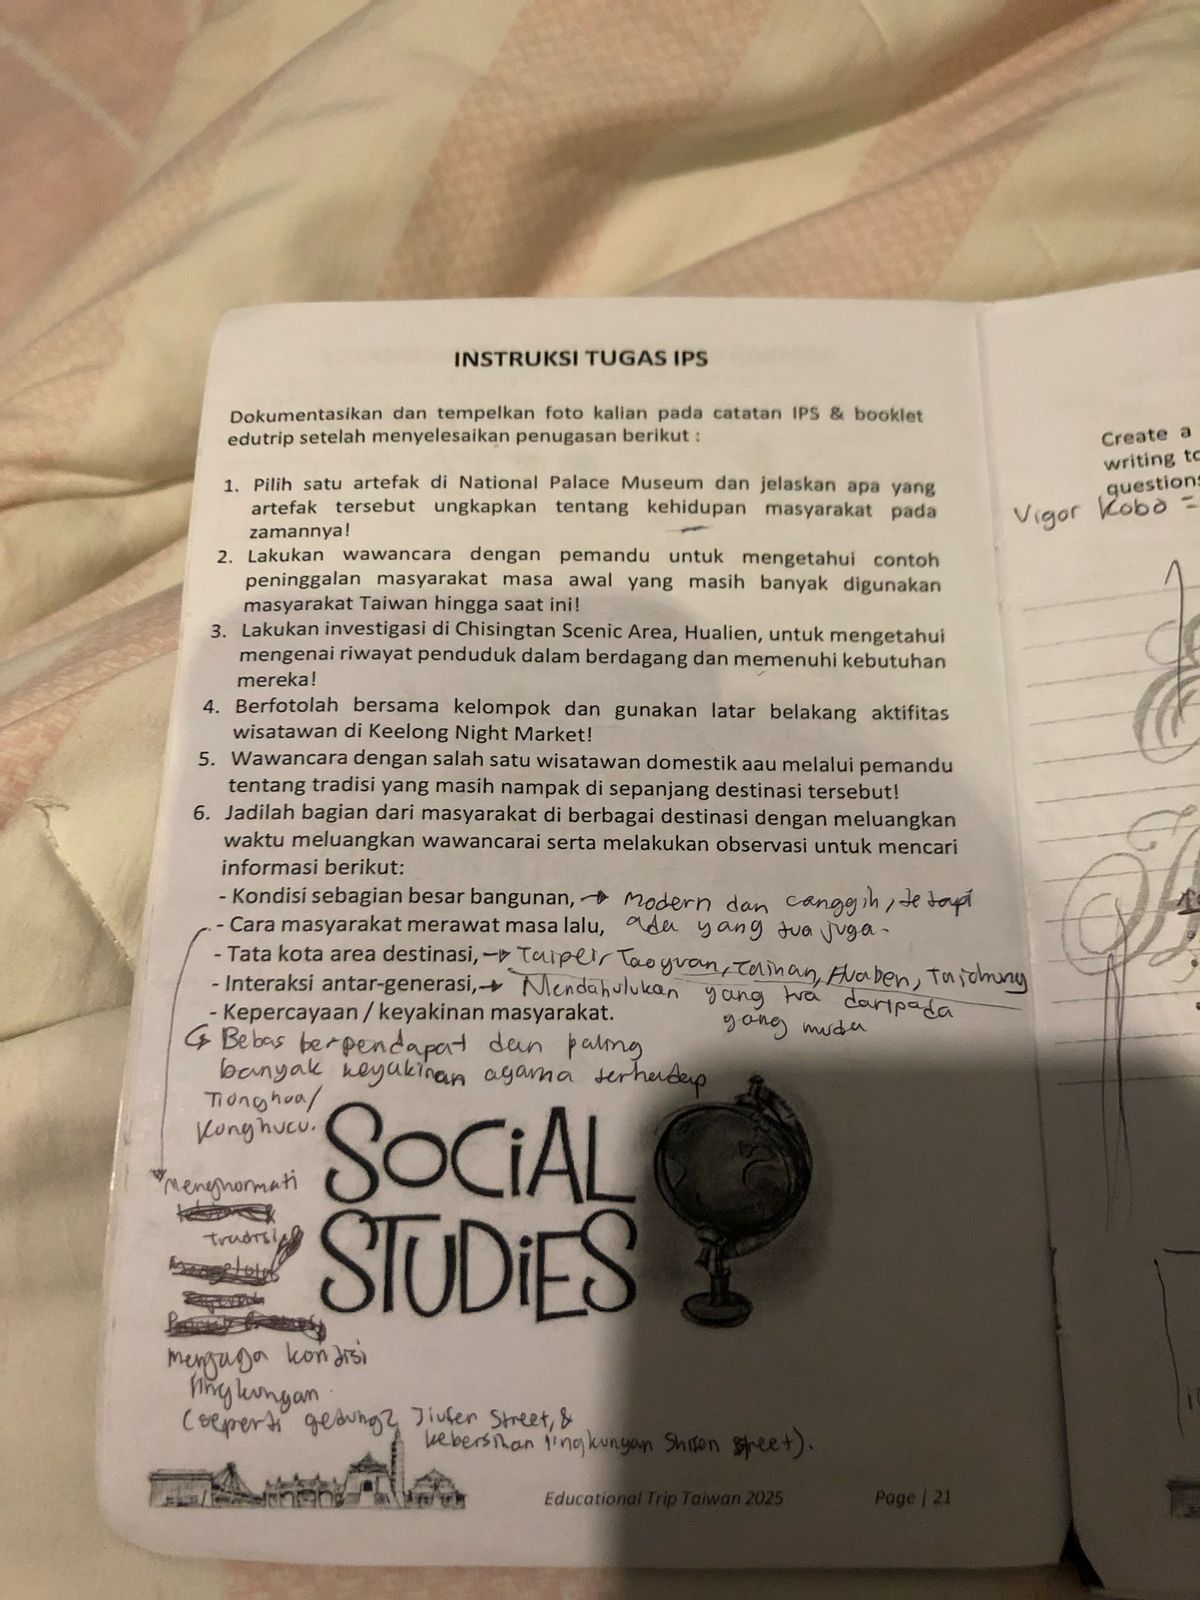 INSTRUKSI TUGAS IPS
Dokumentasikan dan tempelkan foto kalian pada catatan IPS & booklet
edutrip setelah menyelesaikan penugasan berikut :
1. Pilih satu artefak di National Palace Museum dan jelaskan apa yang
artefak tersebut ungkapkan tentang kehidupan masyarakat pada
zamannya!
2. Lakukan wawancara dengan pemandu untuk mengetahui contoh
peninggalan masyarakat masa awal yang masih banyak digunakan
masyarakat Taiwan hingga saat ini!
3. Lakukan investigasi di Chisingtan Scenic Area, Hualien, untuk mengetahui
mengenai riwayat penduduk dalam berdagang dan memenuhi kebutuhan
mereka!
4. Berfotolah bersama kelompok dan gunakan latar belakang aktifitas
wisatawan di Keelong Night Market!
5. Wawancara dengan salah satu wisatawan domestik aau melalui pemandu
tentang tradisi yang masih nampak di sepanjang destinasi tersebut!
6. Jadilah bagian dari masyarakat di berbagai destinasi dengan meluangkan
waktu meluangkan wawancarai serta melakukan observasi untuk mencari
informasi berikut:
- Kondisi sebagian besar bangunan, → Modern dan canggih, tetapi
- Cara masyarakat merawat masa lalu, ada yang tua juga.
- Tata kota area destinasi, → Taipei, Taoyuan, Tainan, Taichung
- Interaksi antar-generasi, → Mendahulukan yang tua daripada
- Kepercayaan / keyakinan masyarakat. yang muda
Bebas berpendapat dan paling
banyak keyakinan agama terhadap
Tionghoa/
Konghucu.
SOCIAL
STUDIES
Menghormati
tradisi
menjaga kondisi
lingkungan
(seperti gedung2 Jiufen Street, &
kebersihan lingkungan Shifen street).
Educational Trip Taiwan 2025 Page | 21
Create a
writing to
questions
Vigor Kobo =